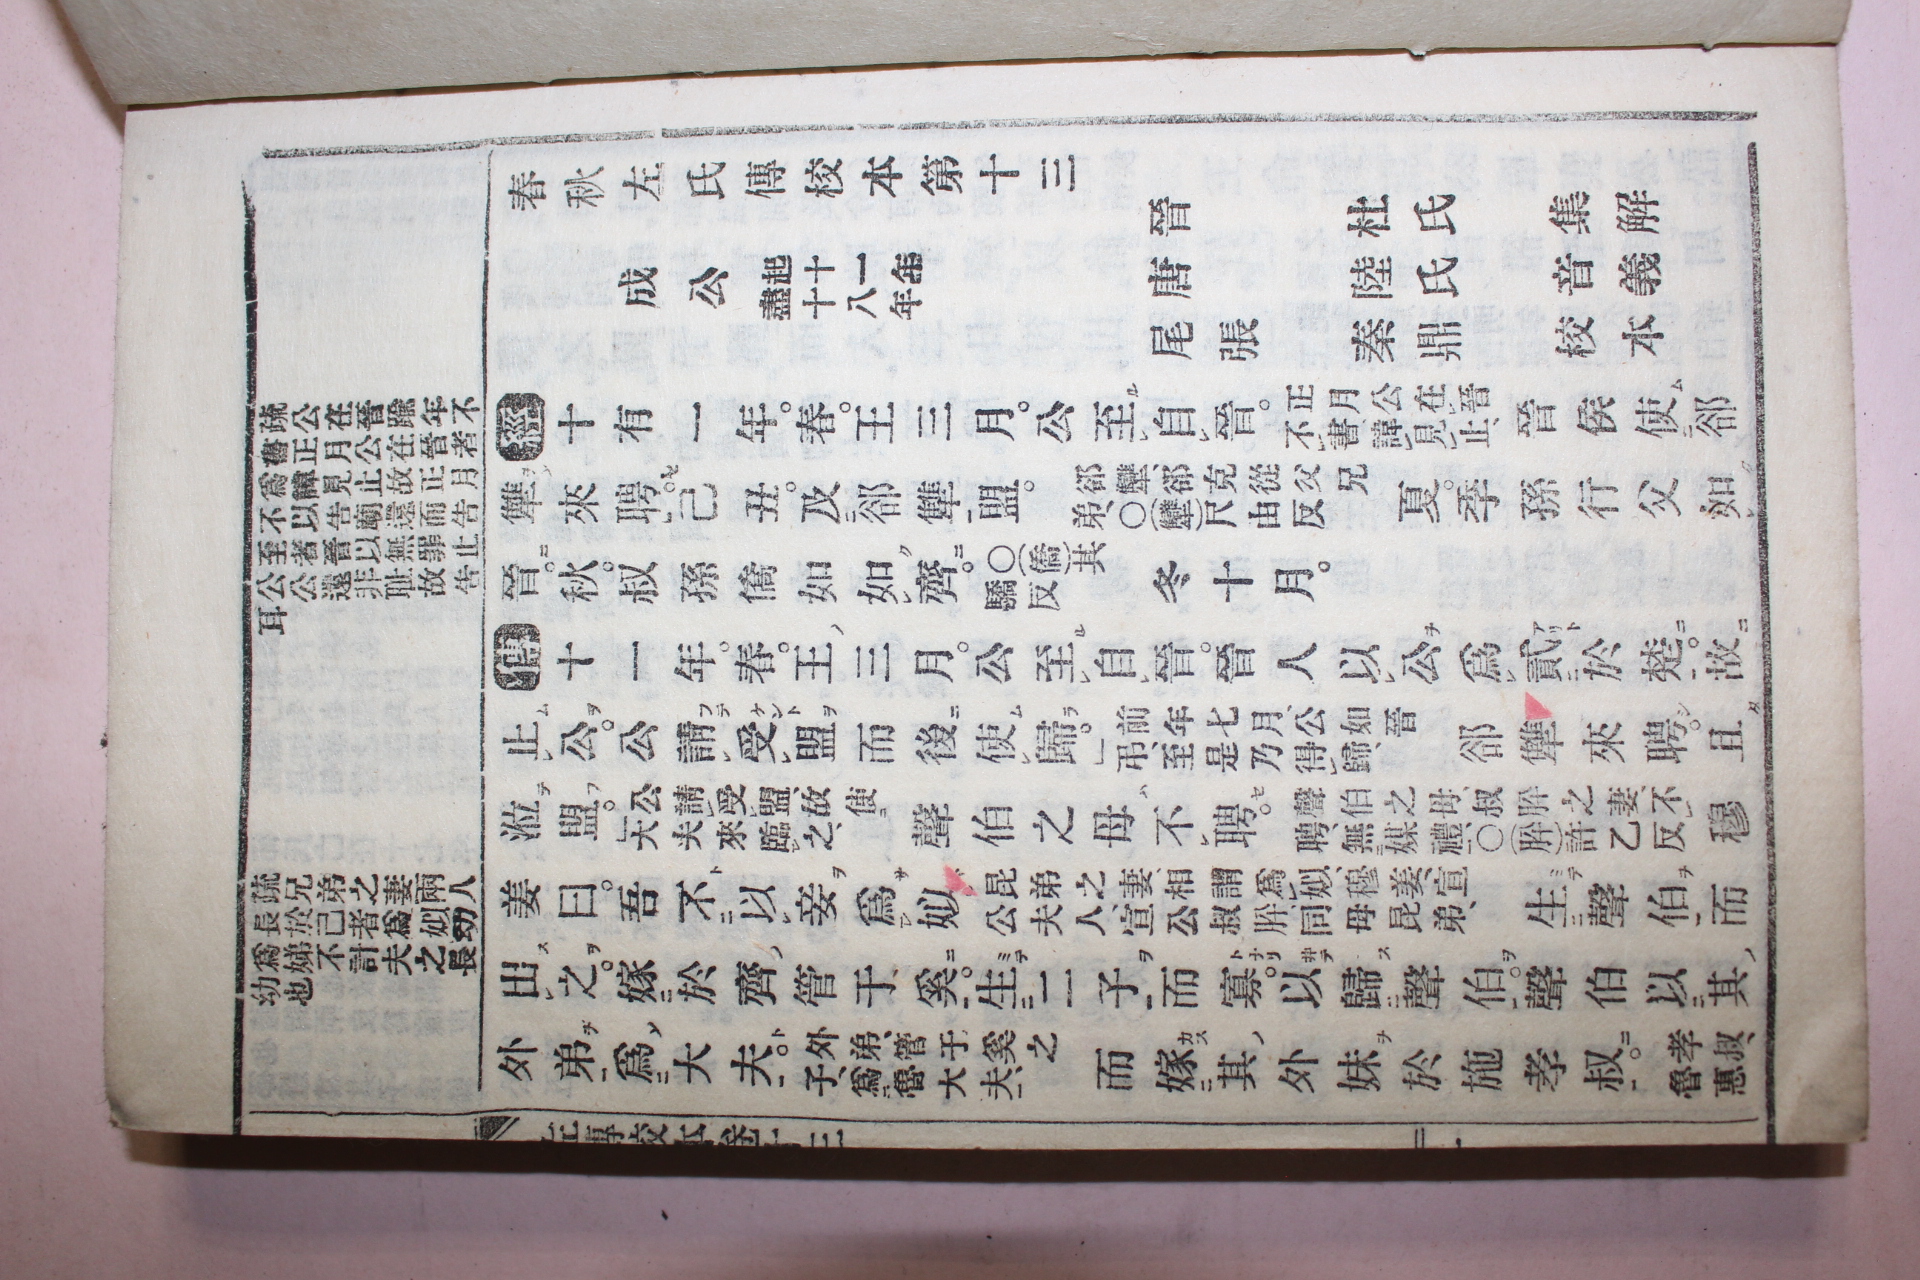 疏公在晉踰年不
書正月公在晉者
爲諱見止故正月
不以告廟還而告
至者晉以無罪止
公公遠非耻故告
耳
疏兄弟之妻兩人
長於己者爲姒幼
爲娣不計夫之長
幼也
春秋左氏傳校本第十三
晉 杜氏 集解
成公 起十一年盡十八年 唐 陸氏 音義
尾張 秦鼎 校本
經十有一年。春。王三月。公至自晉。正月公在晉不書、諱見止、晉侯使郤
犫來聘。己丑。及郤犫盟。郤犫、郤克從父兄弟、〇(犫)尺由反 夏。季孫行父如
晉。秋。叔孫僑如如齊。〇(僑)其驕反 冬十月。
傳十一年。春。王三月。公至自晉。晉人以公爲貳於楚。故
止公。公請受盟而後使歸。前年七月、公如晉弔、至是乃得歸、 郤犫來聘。且
涖盟。公請受盟、故使大夫來臨之、 聲伯之母不聘。聲伯之母、叔肸之妻、不聘、無媒禮、〇(肸)許乙反 穆
姜曰。吾不以妾爲姒 昆弟之妻、相謂爲姒、穆姜、宣公夫人、宣公叔肸、同母昆弟、 生聲伯而
出之。嫁於齊管于奚。生二子而寡。以歸聲伯。聲伯以其
外弟爲大夫。外弟、管于奚之子、爲魯大夫、 而嫁其外妹於施孝叔。孝叔、魯惠
左傳校本卷十三